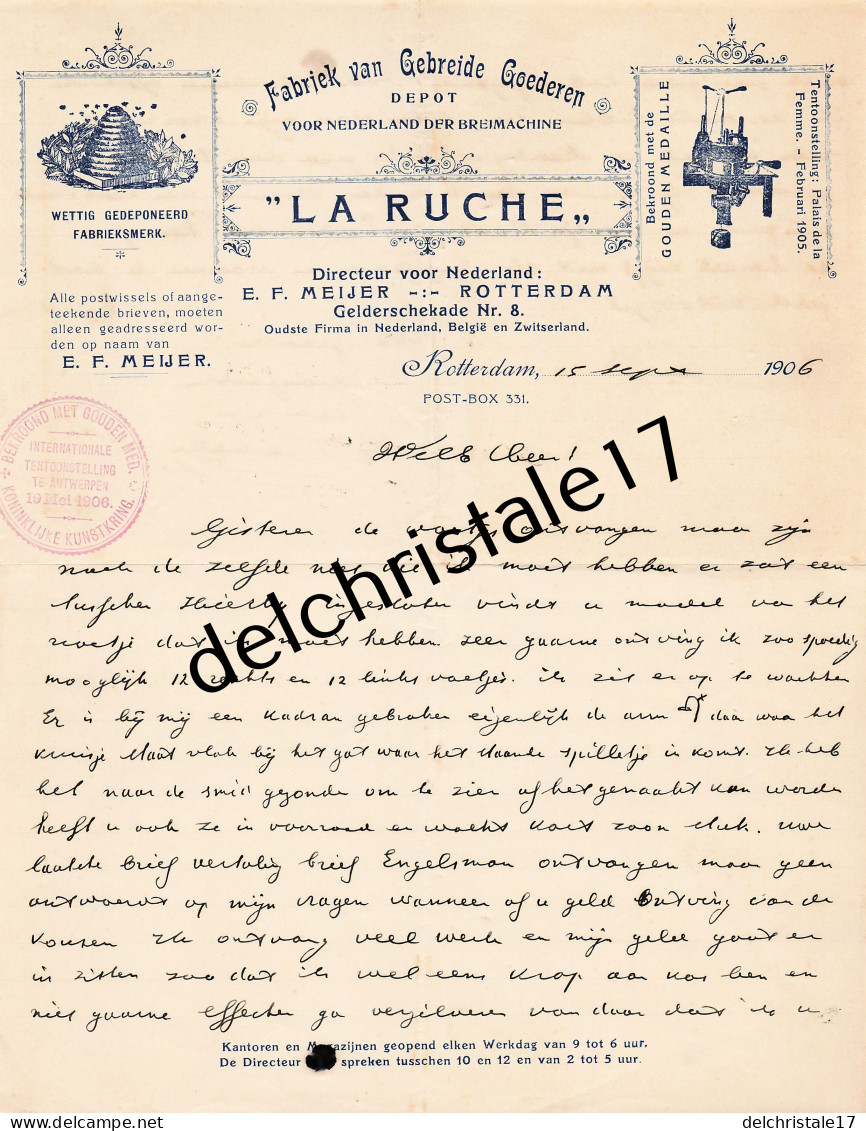 Fabriek van Gebreide Goederen
DEPOT
VOOR NEDERLAND DER BREIMACHINE
"LA RUCHE„
WETTIG GEDEPONEERD
FABRIEKSMERK.
Bekroond met de
GOUDEN MEDAILLE
Tentoonstelling: Palais de la
Femme. - Februari 1905.
Directeur voor Nederland:
E. F. MEIJER -:- ROTTERDAM
Gelderschekade Nr. 8.
Oudste Firma in Nederland, België en Zwitserland.
Alle postwissels of aange-
teekende brieven, moeten
alleen geadresseerd wor-
den op naam van
E. F. MEIJER.
Rotterdam, 15 Sept 1906
POST-BOX 331.
BEKROOND MET GOUDEN MED.
INTERNATIONALE
TENTOONSTELLING
TE ANTWERPEN
19 Mei 1906.
KONINKLIJKE KUNSTKRING.
delchristale17
Gisteren de ontvangen maar zijn
noch de zelfde niet die ik moet hebben er zat een
tusschen Hierby ingesloten vindt u model van het
dat ik moet hebben. zeer gaarne ontving ik zoo spoedig
mooglijk 12 rechts en 12 links ik zit er op te wachten
Er is bij mij een Kadran gebroken eigenlijk de arm daar waar het
staat vlak bij het gat waar het staande spilletje in komt. Ik heb
het naar de smid gezonden om te zien of het gemaakt kan worden
heeft u ook ze in voorraad en wat kost zoon stuk. Uw
laatste brief brief Engelsman ontvangen maar geen
antwoord op mijn vragen wanneer of u geld ontving van de
Kousen Ik ontvang veel werk en mijn geld gaat er
in zitten zoo dat ik wel eens Krap aan Kas ben en
niet gaarne effecten ga verzilveren van daar dat ik u
Kantoren en Magazijnen geopend elken Werkdag van 9 tot 6 uur.
De Directeur spreken tusschen 10 en 12 en van 2 tot 5 uur.
www.delcampe.net
delchristale17